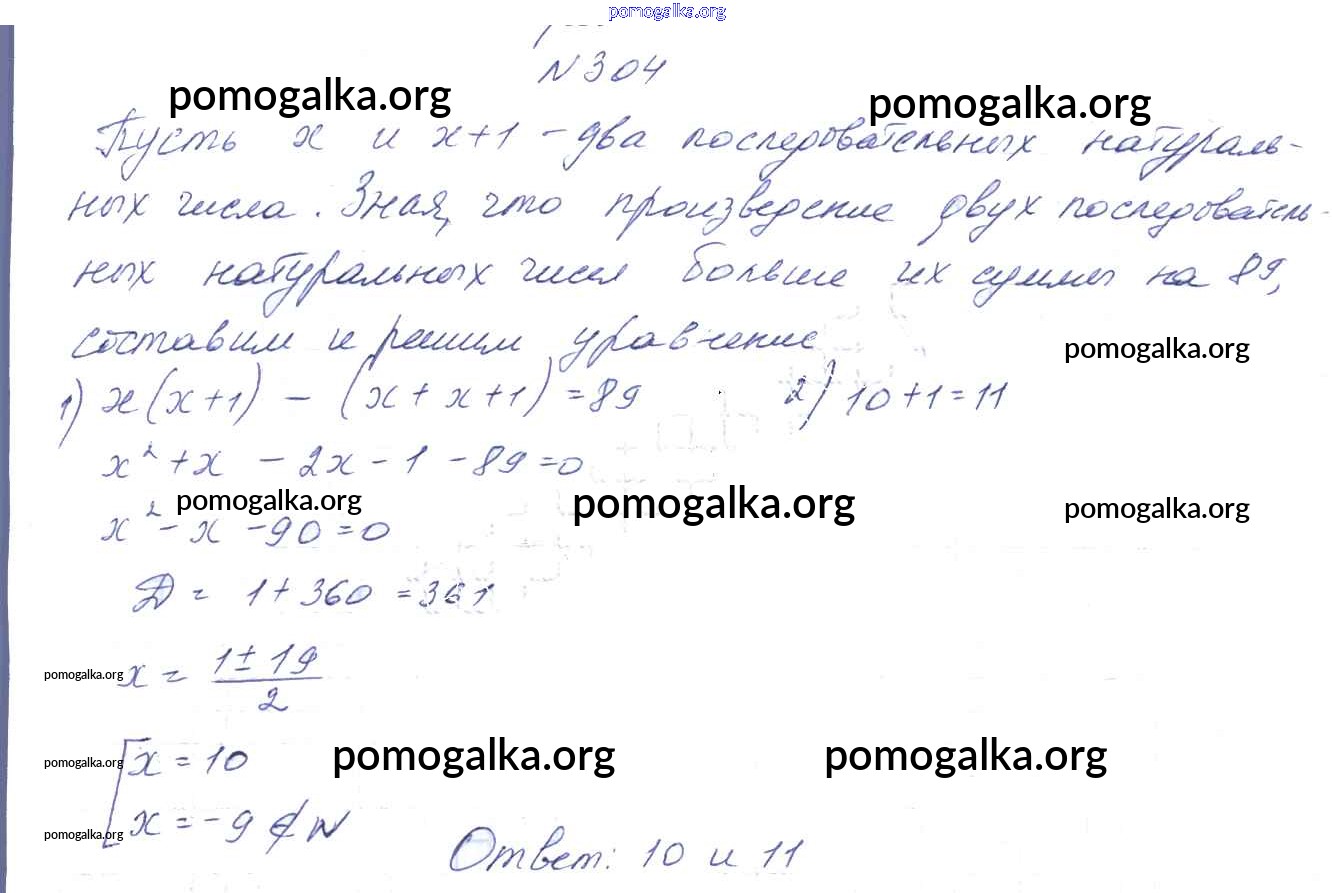 pomogalka.org
N304
pomogalka.org pomogalka.org
Пусть x и x+1 – два последовательных натураль-
ных числа. Зная, что произведение двух последователь-
ных натуральных чисел больше их суммы на 89,
составим и решим уравнение
pomogalka.org
1) x(x+1) – (x+x+1)=89 2) 10+1=11
x² + x – 2x – 1 – 89 = 0
pomogalka.org pomogalka.org pomogalka.org
x² – x – 90 = 0
D = 1 + 360 = 361
pomogalka.org x = (1 ± 19)/2
pomogalka.org x = 10 pomogalka.org pomogalka.org
pomogalka.org x = –9 ∉ N
Ответ: 10 и 11